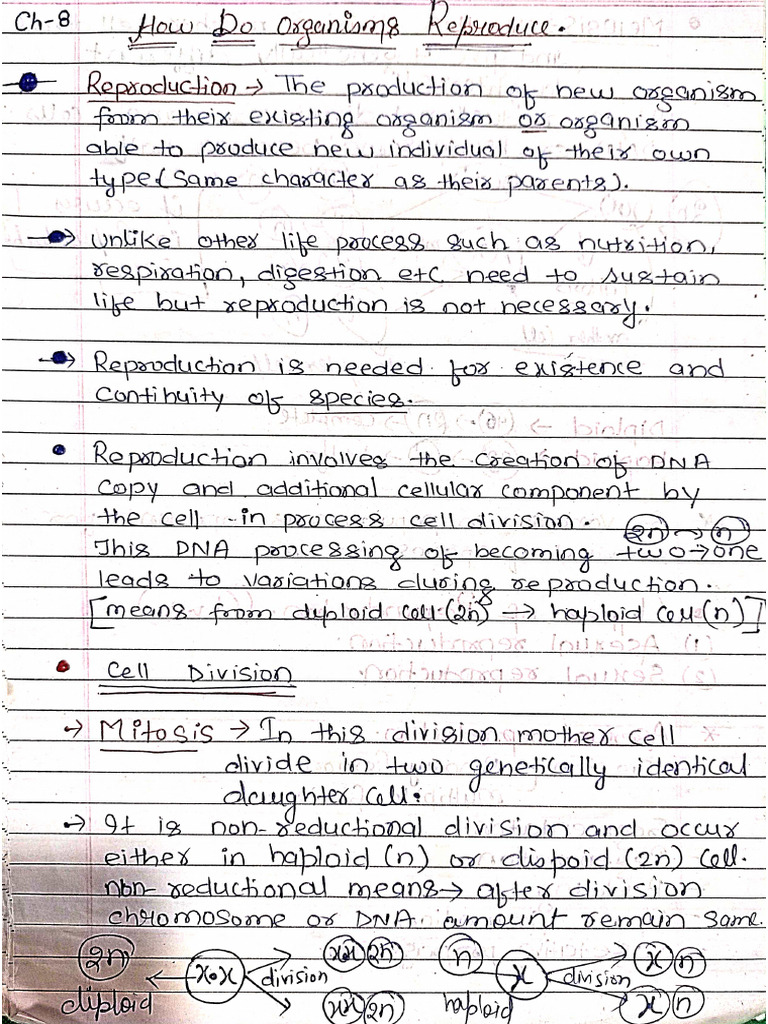 Ch-8 How Do Organisms Reproduce.
Reproduction → The production of new organism
from their existing organism or organism
able to produce new individual of their own
type (same character as their parents).
→ unlike other life process such as nutrition,
respiration, digestion etc need to sustain
life but reproduction is not necessary.
→ Reproduction is needed for existence and
continuity of species.
• Reproduction involves the creation of DNA
copy and additional cellular component by
the cell in process cell division. 2n → n
This DNA processing of becoming two → one
leads to variations during reproduction.
[means from diploid cell (2n) → haploid cell (n)]
• Cell Division
→ Mitosis → In this division mother cell
divide in two genetically identical
daughter cell.
→ It is non-reductional division and occur
either in haploid (n) or dispoid (2n) cell.
non-reductional means → after division
chromosome or DNA amount remain same.
2n x•x division xx 2n n x division x n
diploid xx 2n haploid x n